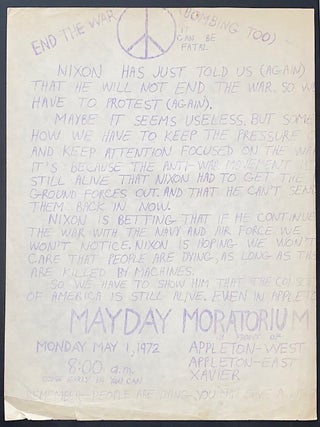 END THE WAR
(BOMBING TOO)
IT
CAN BE
FATAL
NIXON HAS JUST TOLD US (AGAIN)
THAT HE WILL NOT END THE WAR. SO WE
HAVE TO PROTEST (AGAIN).
MAYBE IT SEEMS USELESS, BUT SOME
HOW WE HAVE TO KEEP THE PRESSURE
AND KEEP ATTENTION FOCUSED ON THE WAR
IT'S BECAUSE THE ANTI-WAR MOVEMENT IS
STILL ALIVE THAT NIXON HAD TO GET THE
GROUND FORCES OUT. AND THAT HE CAN'T SEND
THEM BACK IN NOW.
NIXON IS BETTING THAT IF HE CONTINUES
THE WAR WITH THE NAVY AND AIR FORCE WE
WON'T NOTICE. NIXON IS HOPING WE WON'T
CARE THAT PEOPLE ARE DYING, AS LONG AS THEY
ARE KILLED BY MACHINES.
SO WE HAVE TO SHOW HIM THAT THE
OF AMERICA IS STILL ALIVE. EVEN IN APPLETON
MAYDAY MORATORIUM
MONDAY MAY 1, 1972
8:00 a.m.
COME EARLY IF YOU CAN
IN FRONT OF
APPLETON-WEST
APPLETON-EAST
XAVIER
REMEMBER-PEOPLE ARE DYING